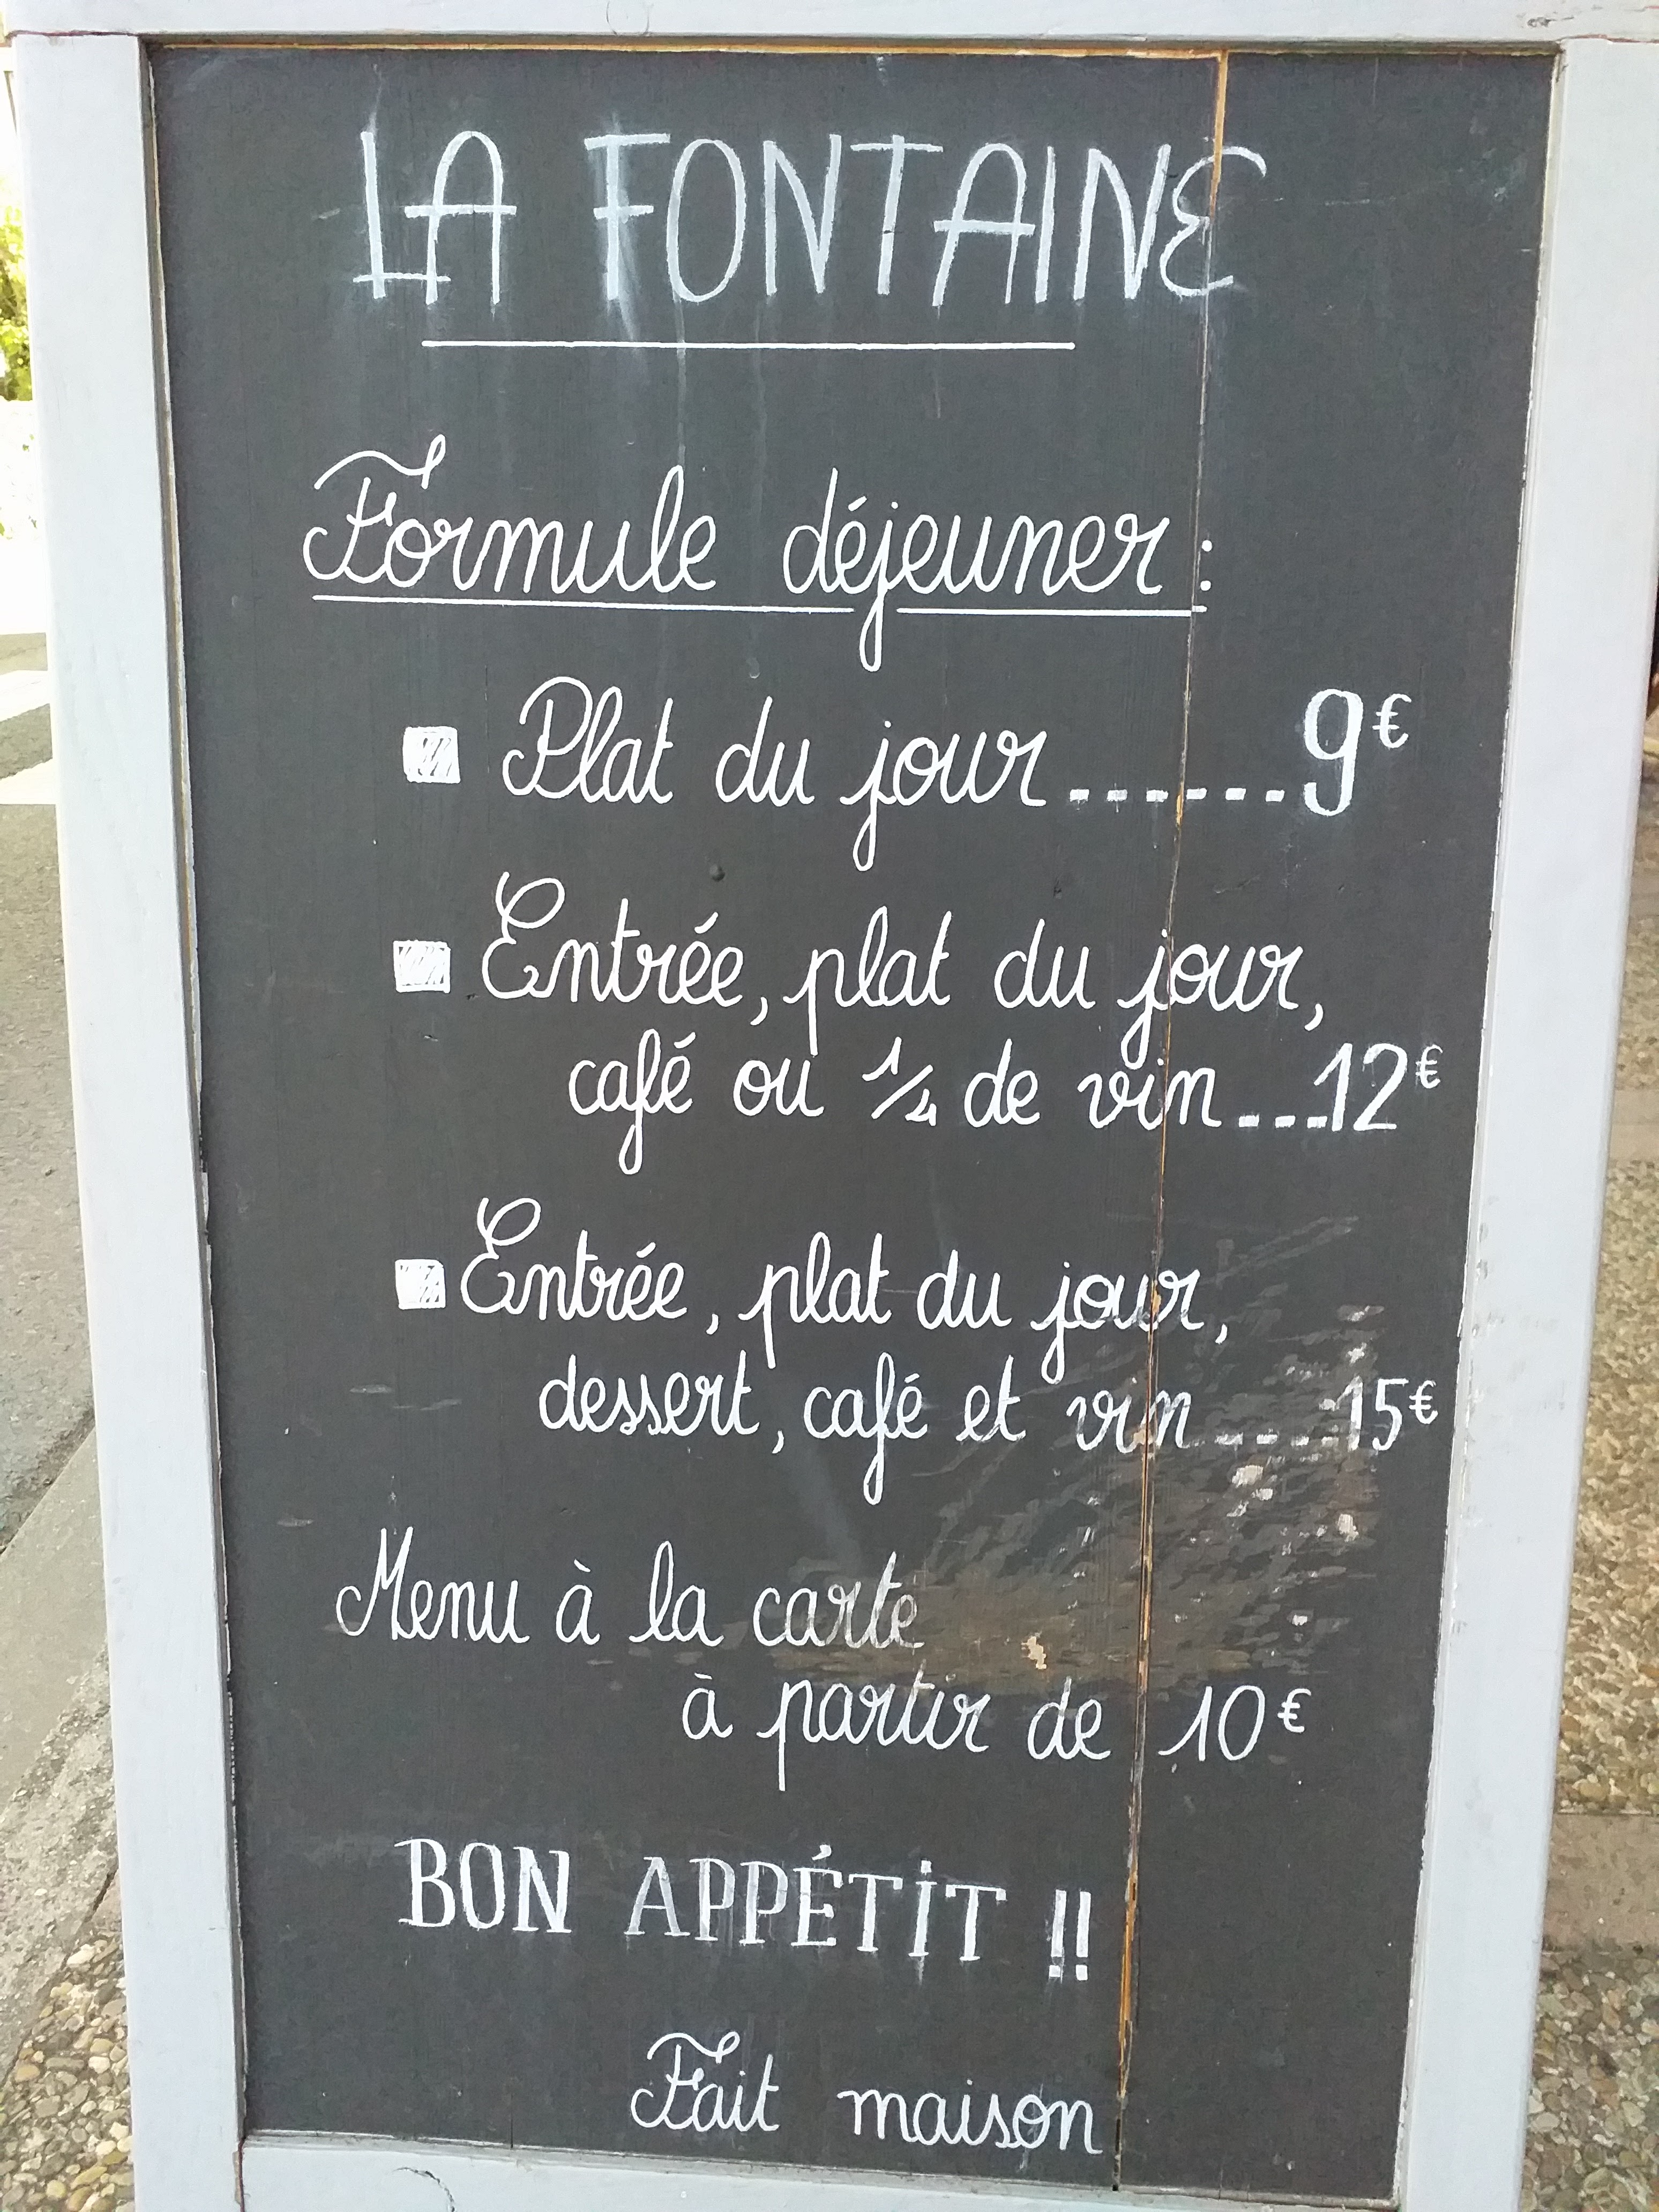 LA FONTAINE
Formule déjeuner :
Plat du jour.......9€
Entrée, plat du jour,
café ou 1/4 de vin....12€
Entrée, plat du jour,
dessert, café et vin.....15€
Menu à la carte
à partir de 10€
BON APPÉTIT !!
Fait maison